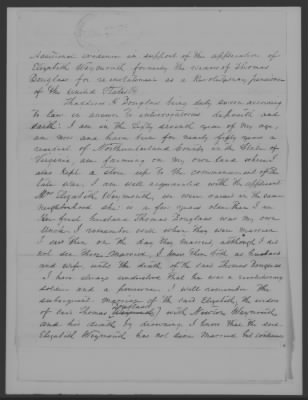 Additional evidence in support of the application of
Elizabeth Weymouth formerly the widow of Thomas
Douglass for reinstatement as a Revolutionary pensioner
of the United States
Thaddeus A Douglass being duly sworn according
to law in answer to interrogatories deposeth and
saith: I am in the sixty seventh year of my age,
am now and have been for nearly fifty years a
resident of Northumberland County in the State of
Virginia, am farming on my own land where I
also kept a store up to the commencement of the
late war. I am well acquainted with the applicant
Mrs Elizabeth Weymouth, we were raised in the same
neighborhood she is a few years older than I am.
Her first husband Thomas Douglass was my own
Uncle. I remember well when they were married
I saw them on the day they married, although I did
not see them married. I knew them both as husband
and wife until the death of the said Thomas Douglass
I have always understood that he was a revolutionary
soldier and a pensioner. I well remember the
subsequent marriage of the said Elizabeth, the widow
of said Thomas Douglass with Newton Weymouth,
and his death by drowning. I know that the said
Elizabeth Weymouth has not been married but continues